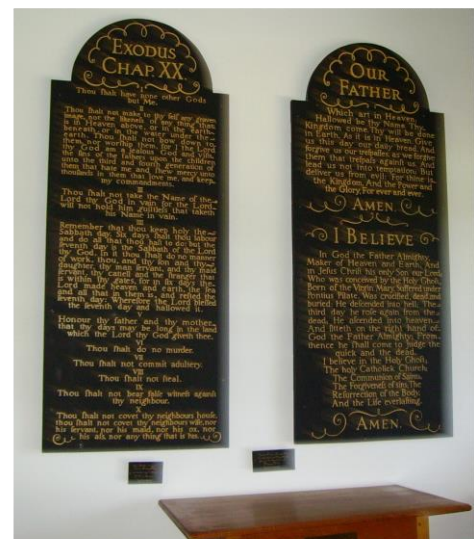 EXODUS
CHAP. XX
I
Thou shalt have none other Gods
but Me.
II
Thou shalt not make to thy self any graven
image, nor the likeness of any thing that
is in Heaven above, or in the earth
beneath, or in the water under the
earth. Thou shalt not bow down to
them, nor worship them, for I the Lord
thy God am a jealous God and visit
the sins of the fathers upon the children
unto the third and fourth generation of
them that hate me and shew mercy unto
thousands in them that love me, and keep
my commandments.
Thou shalt not take the Name of the
Lord thy God in vain for the Lord
will not hold him guiltless that taketh
his Name in vain.
Remember that thou keep holy the
Sabbath day. Six days shalt thou labour
and do all that thou hast to do: but the
seventh day is the Sabbath of the Lord
thy God. In it thou shalt do no manner
of work, thou, and thy son and thy
daughter, thy man servant, and thy maid
servant, thy cattell and the stranger that
is within thy gates, for in six days the
Lord made heaven and earth, the sea
and all that in them is, and rested the
seventh day: Wherefore the Lord blessed
the seventh day and hallowed it.
Honour thy father and thy mother,
that thy days may be long in the land
which the Lord thy God giveth thee.
VI
Thou shalt do no murder.
VII
Thou shalt not commit adultery.
VIII
Thou shalt not steal.
IX
Thou shalt not bear false witness against
thy neighbour.
X
Thou shalt not covet thy neighbours house,
thou shalt not covet thy neighbours wife, nor
his servant, nor his maid, nor his ox, nor
his ass, nor any thing that is his.
OUR
FATHER
Which art in Heaven,
Hallowed be thy Name. Thy
Kingdom come. Thy will be done
in Earth, As it is in Heaven. Give
us this day our daily bread. And
forgive us our trespasses, as we forgive
them that trespass against us. And
lead us not into temptation; But
deliver us from evil: For thine is
the Kingdom, And the Power and
the Glory, For ever and ever.
AMEN.
I BELIEVE
In God the Father Almighty,
Maker of Heaven and Earth, And
in Jesus Christ his only Son our Lord,
Who was conceived by the Holy Ghost,
Born of the Virgin Mary, Suffered under
Pontius Pilate, Was crucified, dead and
buried: He descended into hell. The
third day he rose again from the
dead, He ascended into heaven,
And sitteth on the right hand of
God the Father Almighty. From
thence he shall come to judge the
quick and the dead.
I believe in the Holy Ghost,
The holy Catholick Church,
The Communion of Saints,
The Forgiveness of sins, The
Resurrection of the Body,
And the Life everlasting.
AMEN.